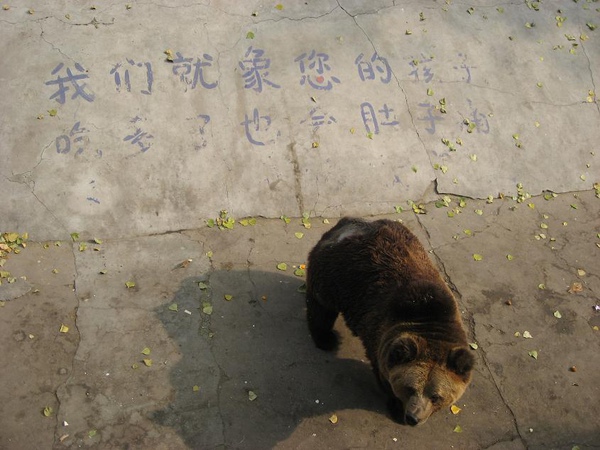 我们就象您的孩子
吃多了也会肚子痛